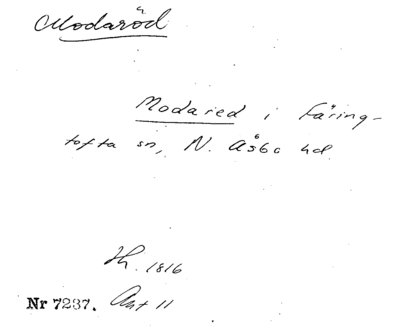 Modaröd
Modared i Färing-
tofta sn, N. Åsbo hd.
Jh. 1816
Nr 7237. Aht 11